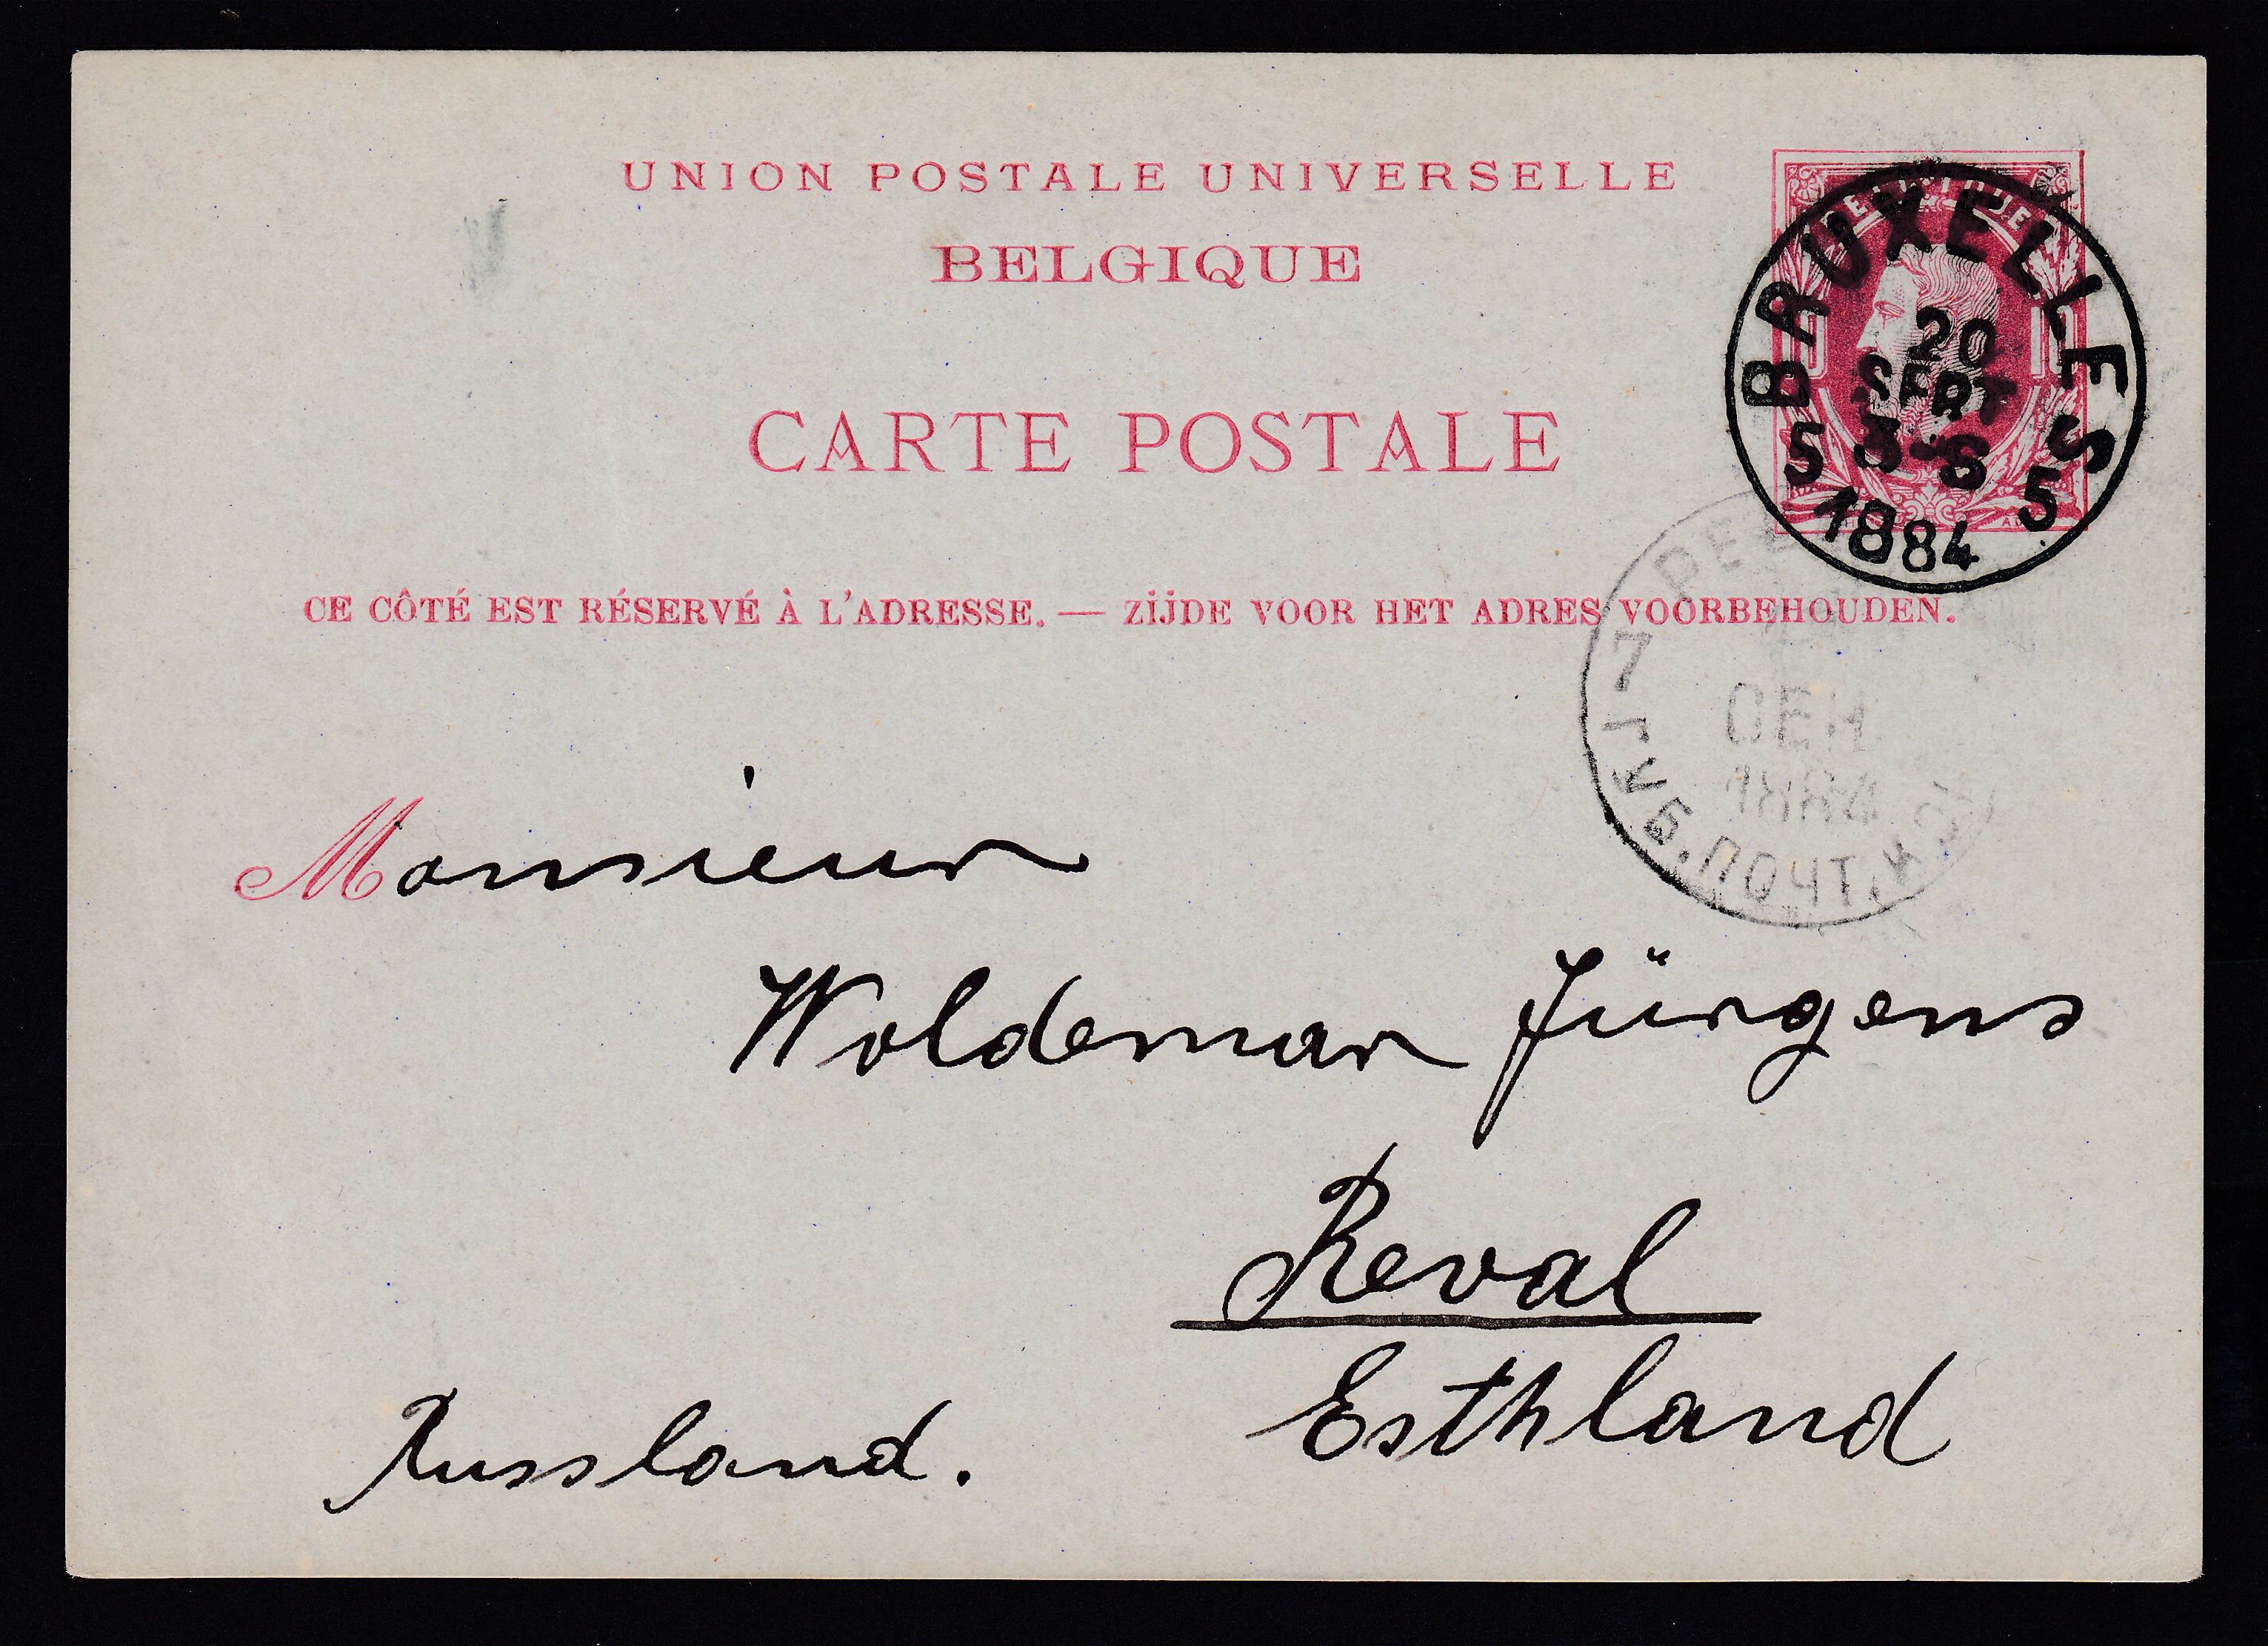 UNION POSTALE UNIVERSELLE
BELGIQUE
CARTE POSTALE
BRUXELLES
20
SEPT
3-S
5 5
1884
CE CÔTÉ EST RÉSERVÉ À L'ADRESSE. — ZIJDE VOOR HET ADRES VOORBEHOUDEN.
7
СЕН
1884
ГУБ. ПОЧТ. К
Monsieur
Woldemar Jürgens
Reval
Esthland
Russland.